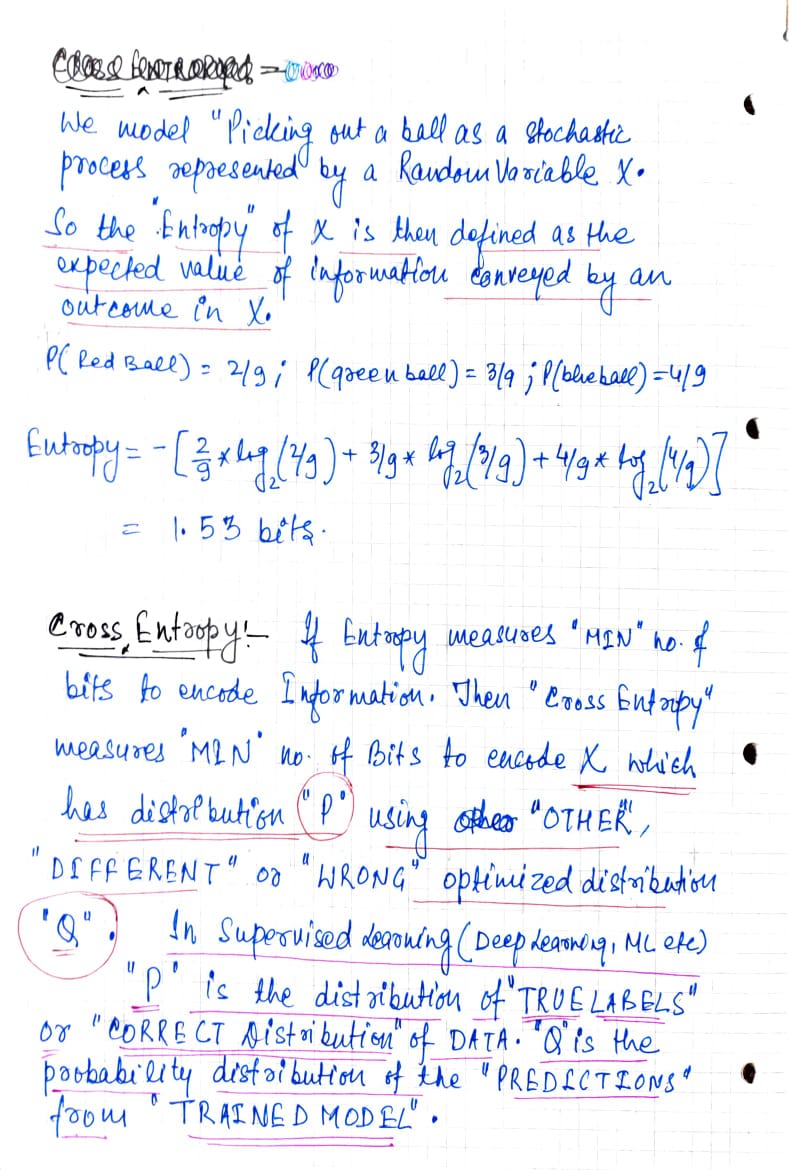 We model "Picking out a ball as a stochastic
process represented by a Random Variable X.
So the "Entropy" of X is then defined as the
expected value of information conveyed by an
outcome in X.
P(Red Ball) = 2/9 ; P(green ball) = 3/9 ; P(blue ball) = 4/9
Entropy = - [ 2/9 × log₂(2/9) + 3/9 * log₂(3/9) + 4/9 * log₂(4/9) ]
= 1.53 bits.
Cross Entropy:- If Entropy measures "MIN" no. of
bits to encode Information. Then "Cross Entropy"
measures "MIN" no. of Bits to encode X which
has distribution "P" using "OTHER",
"DIFFERENT" or "WRONG" optimized distribution
"Q". In Supervised Learning (Deep Learning, ML etc)
"P" is the distribution of "TRUE LABELS"
or "CORRECT Distribution" of DATA. "Q" is the
probability distribution of the "PREDICTIONS"
from "TRAINED MODEL".